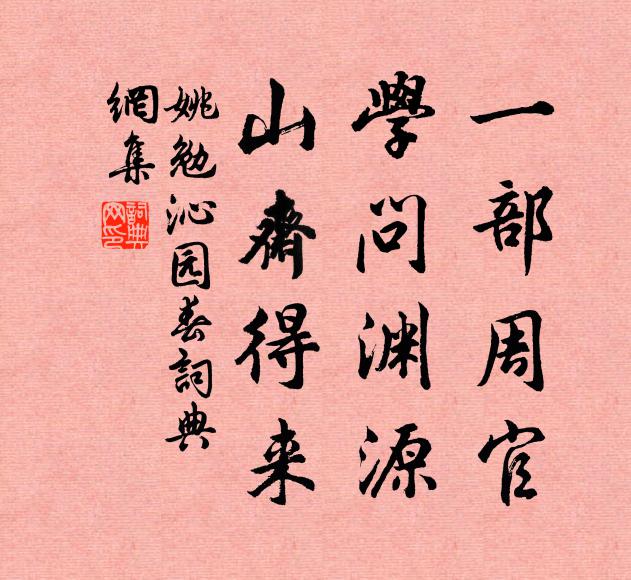 一部周官
學問渊源
山齋得来
姚勉沁园春詞典
網集
詞典網印